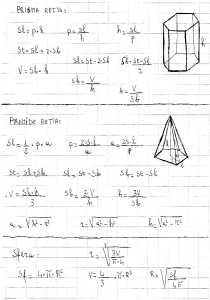 PRISMA RETTO:
Sl = p·h p = Sl/h h = Sl/p
St = Sl + 2·Sb
Sl = St - 2·Sb Sb = St - Sl/2
V = Sb·h Sb = V/h h = V/Sb
h
PIRAMIDE RETTA:
Sl = 1/2·p·a p = 2·Sl/a a = 2·Sl/p
St = Sl + Sb Sl = St - Sb Sb = St - Sl
V = Sb·h/3 Sb = 3·V/h h = 3V/Sb
Sfera:
Sl = 4·π·R² V = 4/3·π·R³ R = √Sl/4π